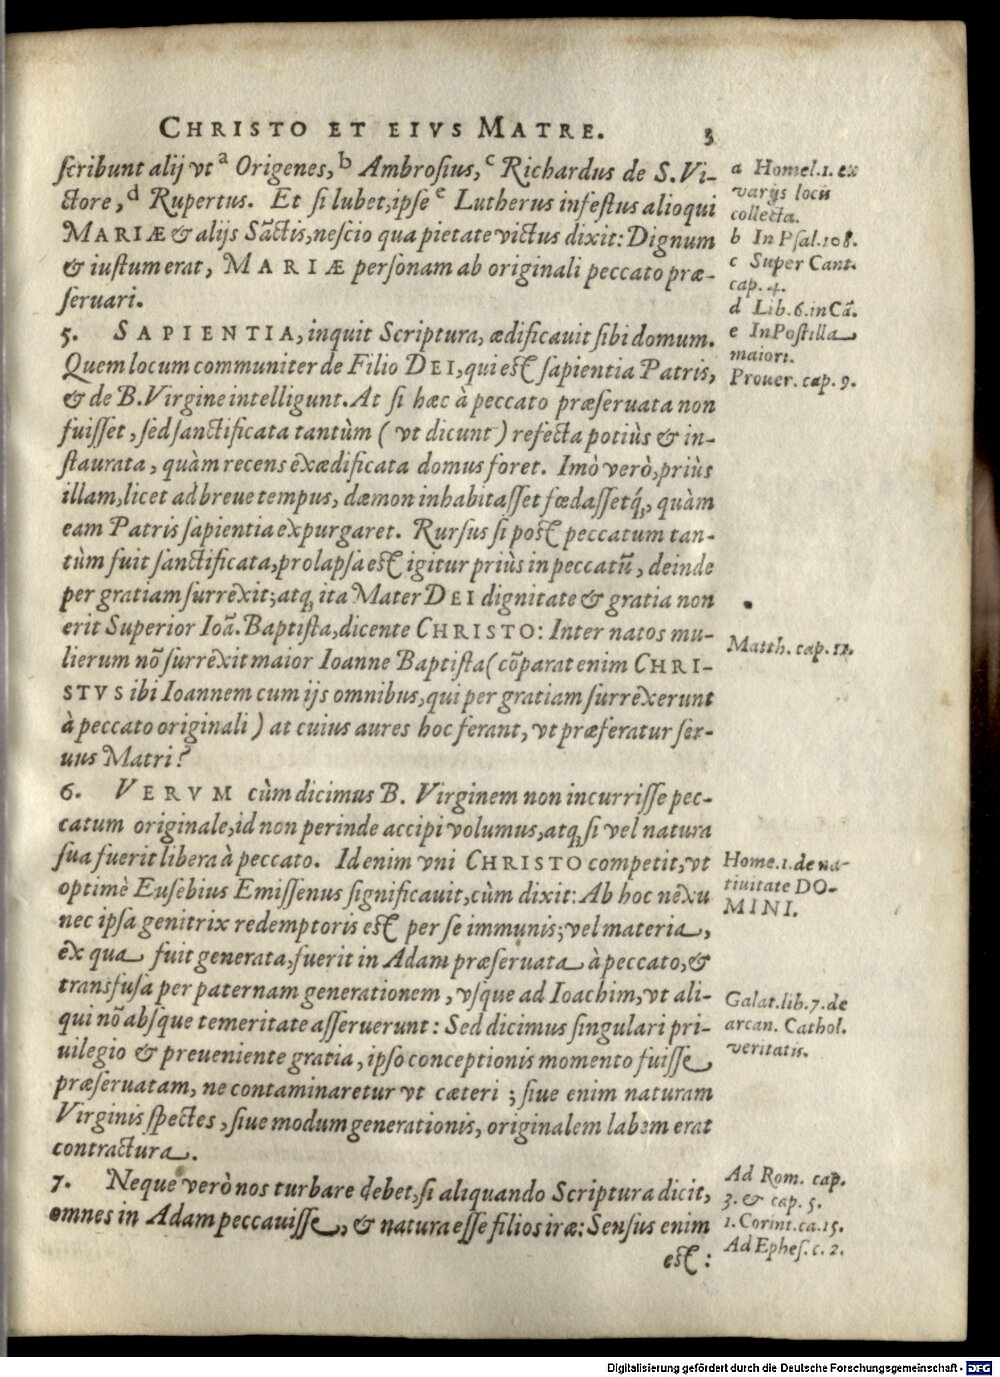 CHRISTO ET EIVS MATRE. 3
scribunt alij vt a Origenes, b Ambrosius, c Richardus de S. Vi-
ctore, d Rupertus. Et si lubet, ipse e Lutherus infestus alioqui
MARIÆ & alijs Sāctis, nescio qua pietate victus dixit: Dignum
& iustum erat, MARIÆ personam ab originali peccato præ-
seruari.
a Homel. 1. ex
varijs locis
collecta.
b In Psal. 108.
c Super Cant.
cap. 4.
d Lib. 6. in Cā.
e In Postilla
maiori.
5. SAPIENTIA, inquit Scriptura, ædificauit sibi domum.
Quem locum communiter de Filio DEI, qui est sapientia Patris,
& de B. Virgine intelligunt. At si hæc à peccato præseruata non
fuisset, sed sanctificata tantùm ( vt dicunt ) refecta potiùs & in-
staurata, quàm recens exædificata domus foret. Imò verò, priùs
illam, licet ad breue tempus, dæmon inhabitasset fœdassetq́;, quàm
eam Patris sapientia expurgaret. Rursus si post peccatum tan-
tùm fuit sanctificata, prolapsa est igitur priùs in peccatū, deinde
per gratiam surrexit; atq; ita Mater DEI dignitate & gratia non
erit Superior Ioā. Baptista, dicente CHRISTO: Inter natos mu-
lierum nō surrexit maior Ioanne Baptista ( cōparat enim CHRI-
STVS ibi Ioannem cum ijs omnibus, qui per gratiam surrexerunt
à peccato originali ) at cuius aures hoc ferant, vt præferatur ser-
uus Matri?
Prouer. cap. 9.
Matth. cap. 11.
6. VERVM cùm dicimus B. Virginem non incurrisse pec-
catum originale, id non perinde accipi volumus, atq; si vel natura
sua fuerit libera à peccato. Id enim vni CHRISTO competit, vt
optimè Eusebius Emissenus significauit, cùm dixit: Ab hoc nexu
nec ipsa genitrix redemptoris est per se immunis; vel materia,
ex qua fuit generata, fuerit in Adam præseruata à peccato, &
transfusa per paternam generationem, vsque ad Ioachim, vt ali-
qui nō absque temeritate asseruerunt: Sed dicimus singulari pri-
uilegio & preueniente gratia, ipso conceptionis momento fuisse
præseruatam, ne contaminaretur vt cæteri ; siue enim naturam
Virginis spectes, siue modum generationis, originalem labem erat
contractura.
Home. 1. de na-
tiuitate DO-
MINI.
Galat. lib. 7. de
arcan. Cathol.
veritatis.
7. Neque verò nos turbare debet, si aliquando Scriptura dicit,
omnes in Adam peccauisse, & natura esse filios iræ: Sensus enim
est :
Ad Rom. cap.
3. & cap. 5.
1. Corint. ca. 15.
Ad Ephes. c. 2.
Digitalisierung gefördert durch die Deutsche Forschungsgemeinschaft - DFG